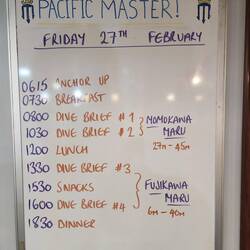 PACIFIC MASTER!
FRIDAY 27TH FEBRUARY
0615 ANCHOR UP
0730 BREAKFAST
0800 DIVE BRIEF #1
1030 DIVE BRIEF #2
MOMOKAWA
MARU
27m - 45m
1200 LUNCH
1330 DIVE BRIEF #3
1530 SNACKS
1600 DIVE BRIEF #4
FUJIKAWA
MARU
6m - 40m
1830 DINNER